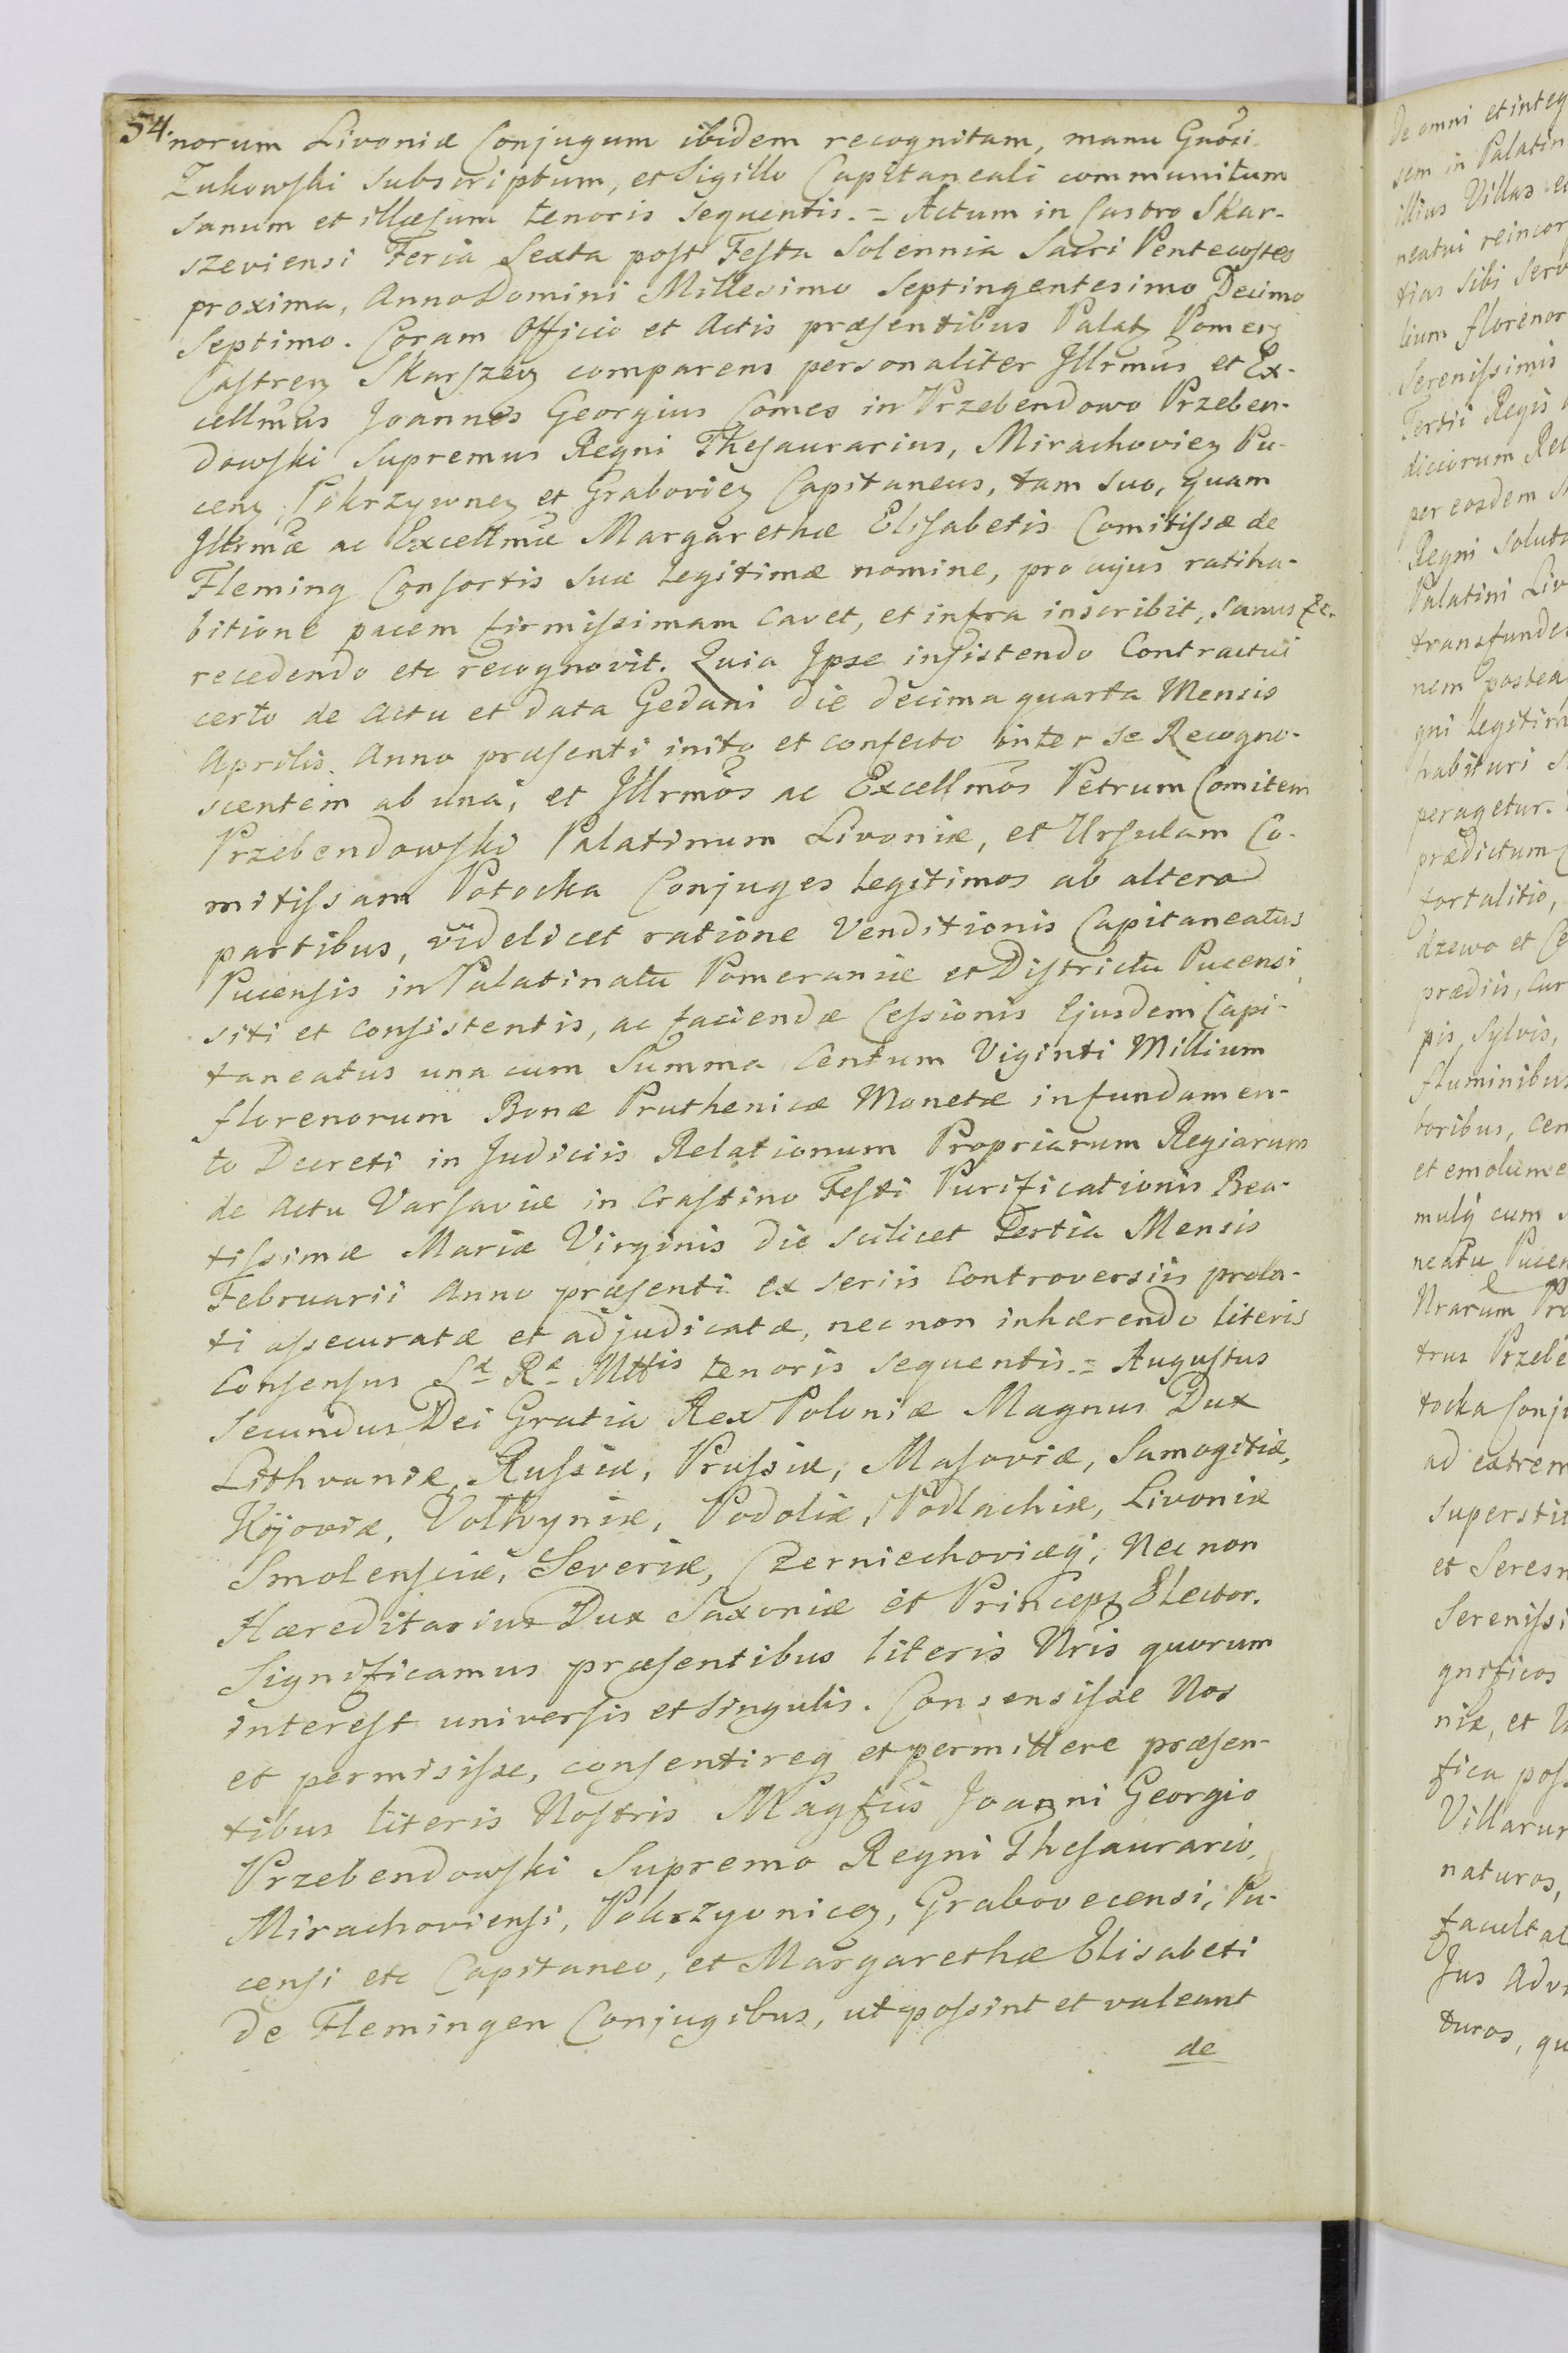 54.
norum Livoniæ Conjugum ibidem recognitam, manu Gnosi
Zukowski subscriptum, et Sigillo Capitaneali communitum
sanum et illæsum tenoris sequentis. = Actum in Castro Skar-
szeviensi Feria Sexta post Festa Solennia Sacri Pentecostes
proxima, Anno Domini Millesimo Septingentesimo Decimo
Septimo. Coram Officio et Actis præsentibus Palatz Pomerz
Castrenz Skarszevz comparens personaliter Jllrmus et Ex-
cellmus Joannes Georgius Comes in Przebendowo Przeben-
dowski Supremus Regni Thesaurarius, Mirachoviez Pu-
cenz, Pokrzywnez et Graboviez Capitaneus, tam suo, quam
Jllrmæ ac Excellmæ Margarethæ Elisabetis Comitissæ de
Fleming Consortis suæ legitimæ nomine, pro cujus ratiha-
bitione pacem firmissimam cavet, et infra inscribit, sanus etc.
recedendo etc recognovit. Quia Jpse insistendo Contractui
certo de actu et data Gedani die decima quarta Mensis
Aprilis Anno præsenti inito et confecto inter se Recogno-
scentem ab una, et Jllrmos ac Excellmos Petrum Comitem
Przebendowski Palatinum Livoniæ, et Ursulam Co-
mitissam Potocka Conjuges legitimos ab altera
partibus, videlicet ratione Venditionis Capitaneatus
Pucensis in Palatinatu Pomeraniæ et Districtu Pucensi
siti et consistentis, ac faciendæ Cessionis Ejusdem Capi-
taneatus una cum Summa Centum Viginti Millium
florenorum Bonæ Pruthenicæ Monetæ in fundamen-
to Decreti in Judiciis Relationum Propriarum Regiarum
de Actu Varsaviæ in Crastino Festi Purificationis Bea-
tissimæ Mariæ Virginis die scilicet Tertia Mensis
Februarii Anno præsenti ex seriis controversiis prola-
ti assecuratæ et adjudicatæ, nec non inhærendo literis
Consensus Sæ Ræ Mttis tenoris sequentis. = Augustus
Secundus Dei Gratia Rex Poloniæ Magnus Dux
Lithvaniæ, Russiæ, Prussiæ, Masoviæ, Samogitiæ,
Kijoviæ, Volhyniæ, Podoliæ, Podlachiæ, Livoniæ
Smolensciæ, Severiæ, Czerniechoviæq, Nec non
Hæreditarius Dux Saxoniæ et Princeps Elector.
Significamus præsentibus literis Nris quorum
interest universis et singulis. Consensisse Nos
et permisisse, consentireq et permittere præsen-
tibus literis Nostris Magfus Joanni Georgio
Przebendowski Supremo Regni Thesaurario,
Mirachoviensi, Pokrzyvnicez, Grabovecensi, Pu-
censi etc Capitaneo, et Margarethæ Elisabeti
de Flemingen Conjugibus, ut possint et valeant
de
de omni et integ
sem in Palatin
illius Villas
neatui reincor
tias sibi serv
lium florenor
Serenissimis
Tertii Regis
diciorum Rel
per eosdem
Regni solut
Palatini Liv
transfunde
nem postea
gni legitim
habituri
peragetur.
prædictum
fortalitio,
dzewo et
prædiis, Cur
pis, Sylvis,
fluminibus
boribus, cen
et emolume
mulq cum
neatu Pucen
Nrarum Pr
trus Przebe
tocka Conju
ad extrem
superstit
et Seresn
Serenissi
gnificos
niæ, et U
fica pos
Villarum
naturos,
facultat
Jus Adv
turos, qu